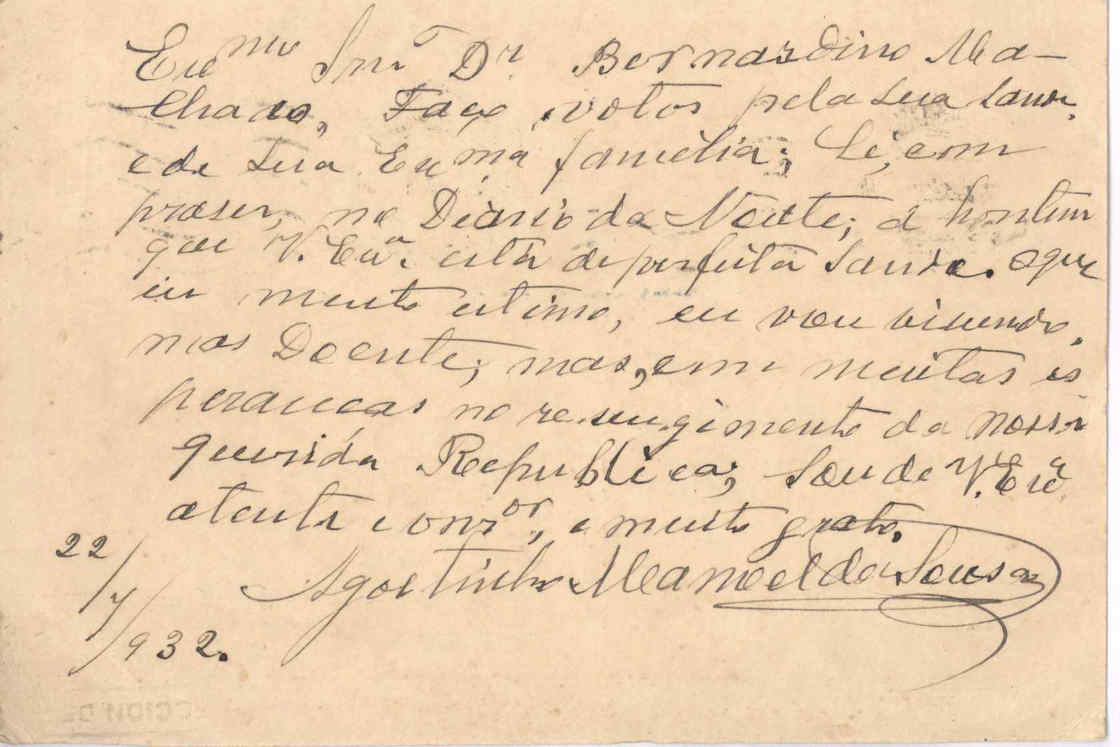 Exmo Snr Dr Bernardino Ma-
chado, Faço votos pela sua saude,
e de sua Exma familia; Li, com
praser, no Diario da Noute, d'hontem
que V. Exa. está de perfeita saude. o que
eu muito estimo, eu vou vivendo,
mas Doente; mas, com muitas es
peranças no resurgimento da nossa
querida Republica; Sou de V. Exa
atento e onror, e muito grato,
Agostinho Manoel da Sousa
22/7/932.